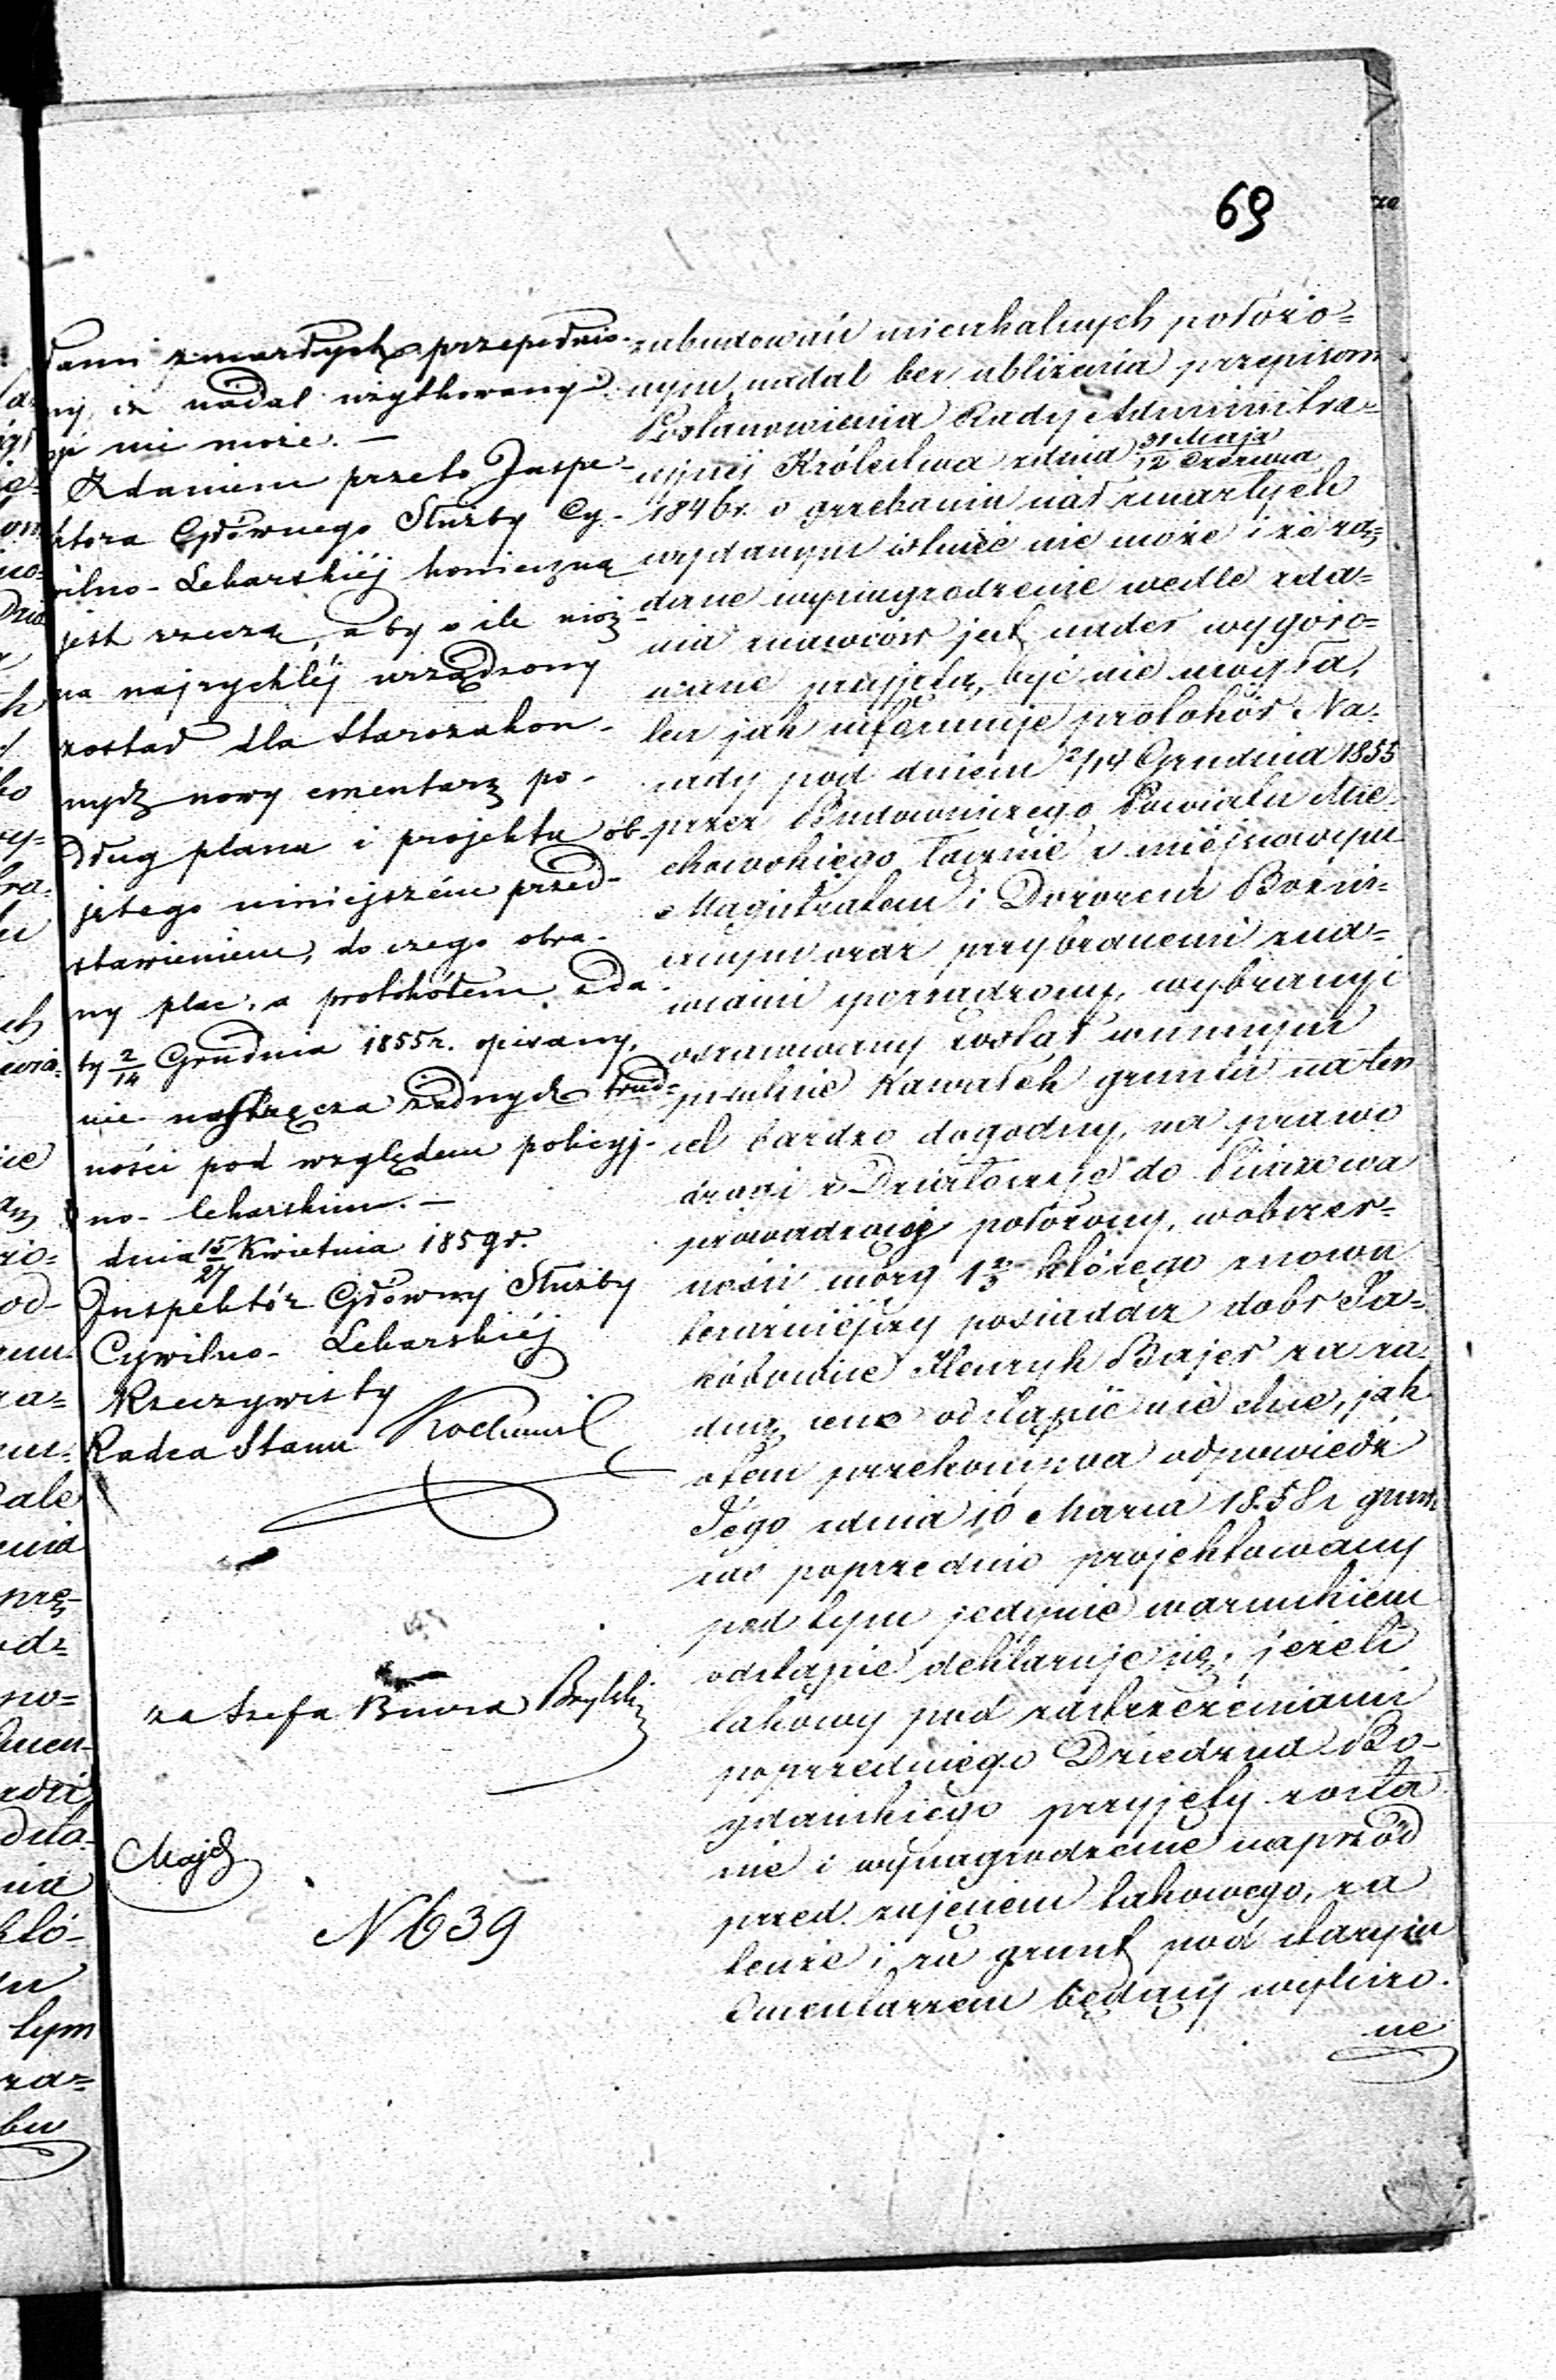 69
łami zmarłych przepełnio-
ny, iż nadal użytkowany
być nie może. —
Zdaniem przeto Inspe-
ktora Głównego Służby Cy-
wilno-Lekarskiéj konieczną
jest rzeczą, aby o ile moż-
na najrychléj urządzony
został dla Starozakon-
nych nowy cmentarz po-
dług planu i projektu ob-
jętego niniejszém przed-
stawieniem, do czego obra-
ny plac, a protokółem z da-
ty 2/14 Grudnia 1855 r. opisany,
nie nastręcza żadnych trud-
ności pod względem policyj-
no-lekarskim. —
dnia 15/27 Kwietnia 1859 r.
Inspektór Główny Służby
Cywilno-Lekarskiéj
Rzeczywisty
Radca Stanu
za Szefa Biura
N 639
zabudowań mieszkalnych położo=
nym, nadal bez ubliżenia przepisom
Postanowienia Rady Administra=
cyjnéj Królestwa z dnia 31 Maja/12 Czerwca
1846 r. o grzebaniu ciał zmarłych
wydanym istnieć nie może i że żą=
dane wynagrodzenie wedle zda=
nia znawców jest nader wygóro=
wane przyjętą być nie mogła,
lecz jak informuje protokół Na-
rady pod dniem 2/14 Grudnia 1855
przez Budowniczego Powiatu Mie-
chowskiego łącznie z miejscowym
Magistratem i Dozorem Bóżni=
cznym oraz przybranemi zna=
wcami sporządzony, wybrany i
oszacowany został w innym
punkcie kawałek gruntu na ten
cel bardzo dogodny, na prawo
drogi z Działoszyc do Pińczowa
prowadzącej położony, w obszer=
ności morg 1 2/3 którego znowu
teraźniejszy posiadacz dobr
Henryk Bajer za ża-
dną cenę odstąpić nie chce, jak
o tem przekonywa odpowiedź
Jego z dnia 10 Marca 1858 r. grunt
zaś poprzednio projektowany
pod tym jedynie warunkiem
odstąpić deklaruje się, jeżeli
takowy pod zastrzeżeniami
poprzedniego Dziedzica Bo-
gdańskiego przyjęty zosta
nie i wynagrodzenie naprzód
przed zajęciem takowego, za
tenże i za grunt pod starym
Cmentarzem będący wyliczo-
ne